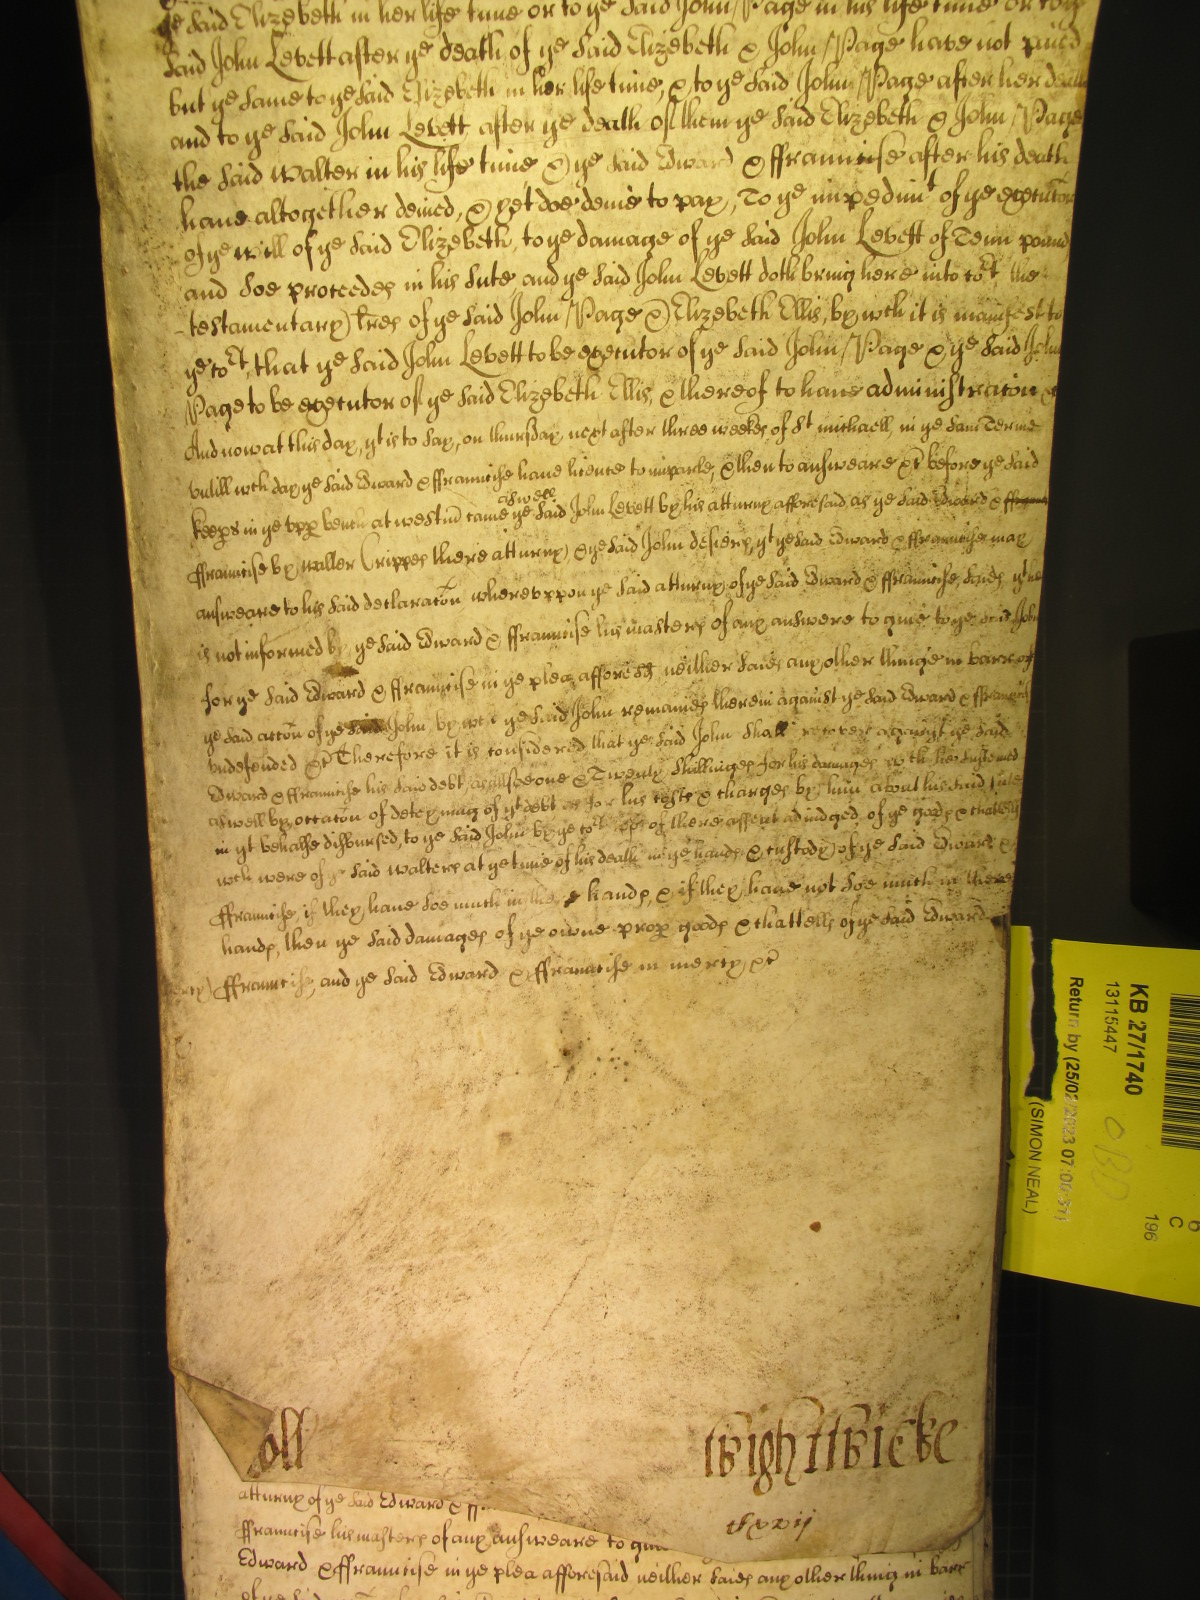 ye said Elizebeth in her life time or to ye said John Page in his life time or to ye
said John Levett after ye death of ye said Elizebeth & John Page have not paied
but ye same to ye said Elizebeth in her life time, & to ye said John Page after her death
and to ye said John Levett after ye death of them ye said Elizebeth & John Page
the said Walter in his life time & ye said Edward & ffrauncise after his death
haue altogether denied, & yet doe denie to pay, To ye impedimt of ye executon
of ye will of ye said Elizebeth, to ye damage of ye said John Levett of Tenn pound
and soe proceedes in his sute and ye said John Levett doth bring here into cort the
testamentary lres of ye said John Page & Elizebeth Ellis, by wch it is manifest to
ye cort, that ye said John Levett to be executor of ye said John Page & ye said John
Page to be executor of ye said Elizebeth Ellis, & thereof to haue administracon &
And now at this day, yt is to say, on thursday next after three weekes of St michaell, in ye same Terme
vntill wch day ye said Edward & ffrauncise haue licence to imparle, & then to answeare &c before ye said
aswell
keeps in ye vpp bench at westm came ye said John Levett by his atturny afforesaid, as ye said Edward &
ffrauncise by waller Crippes there atturny, & ye said John desiers, yt ye said Edward & ffrauncise may
answeare to his said declaracon whereuppon ye said atturny of ye said Edward & ffrauncise, saies yt he
is not informed by ye said Edward & ffrauncise his masters of any answere to giue to ye said John
for ye said Edward & ffrauncise in ye plea afforesd neither saies any other thinge in barr of
ye said accon of ye said John by wch ye said John remaines therein against ye said Edward & ffrauncise
vndefended &c Therefore it is considered that ye said John shall recover against ye said
Edward & ffrauncise his said debt, as allsoe one & Twenty shillinges for his damages wch hee susteined
aswell by occation of deteyning of yt debt as for his costs & charges by him about his said sute
in yt behalfe disbursed, to ye said John by ye cort of there assent adiudged, of ye goods & chattells
wch were of ye said walters at ye time of his death in ye hands & custody of ye said Edward &
ffrauncise, if they haue soe much in there hands, & if they haue not soe much in there
hands, then ye said damages of ye owne prop goods & chattells of ye said Edward &
mercy ffrauncise, and ye said Edward & ffrauncise in mercy, &c
oll Wightwicke
atturny of ye said Edward & ff
ffrauncise his masters of any answeare to giue
Edward & ffrauncise in ye plea afforesaid neither saies any other thing in barr
KB 27/1740
13115447
Return by (25/02/2023 07:00:31)
(SIMON NEAL)
C
196